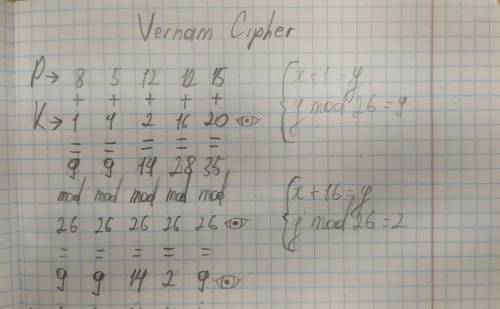 Vernam Cipher
P→ 8 5 12 12 15
+ + + + +
K→ 1 4 2 16 20
= = = = =
9 9 14 28 35
mod mod mod mod mod
26 26 26 26 26
= = = = =
9 9 14 2 9
{x+1=y
y mod 26=9
{x+16=y
y mod 26=2